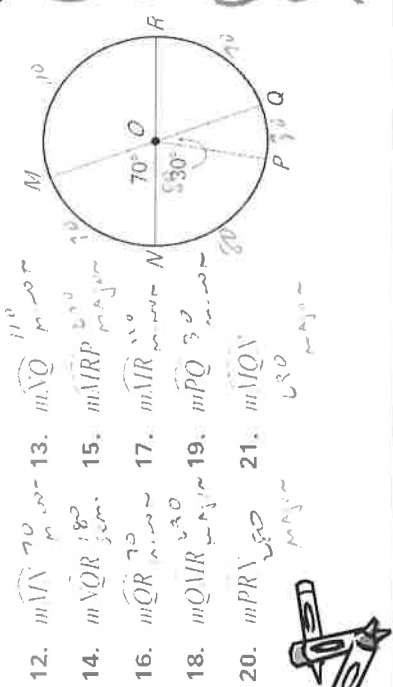 12. mMN 70 minor 13. mNQ 110 minor
14. mNQR 180 semi. 15. mMRP major
16. mQR 70 minor 17. mMR 110 minor
18. mQMR major 19. mPQ 30 minor
20. mPRN major 21. mMQN major
M 110 R
70 70° O 70
N 30° Q
80 P 30